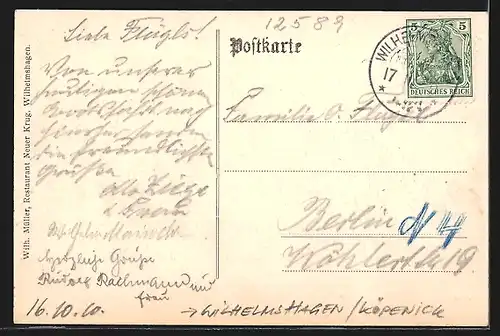 Wilh. Müller, Restaurant Neuer Krug, Wilhelmshagen.
Liebe Flügls!
Von unserer
heutigen schönen
nach
die freundlichsten
Grüße
Otto
& Frau
Wilhelm
Herzliche Grüße
Rudolf Rachmann und
Frau
16.10.10.
12589
Postkarte
WILHE
17
5 5
DEUTSCHES REICH
Familie O. Flügel
Berlin N 4
Wöhlertstr 19
→ WILHELMSHAGEN / KÖPENICK